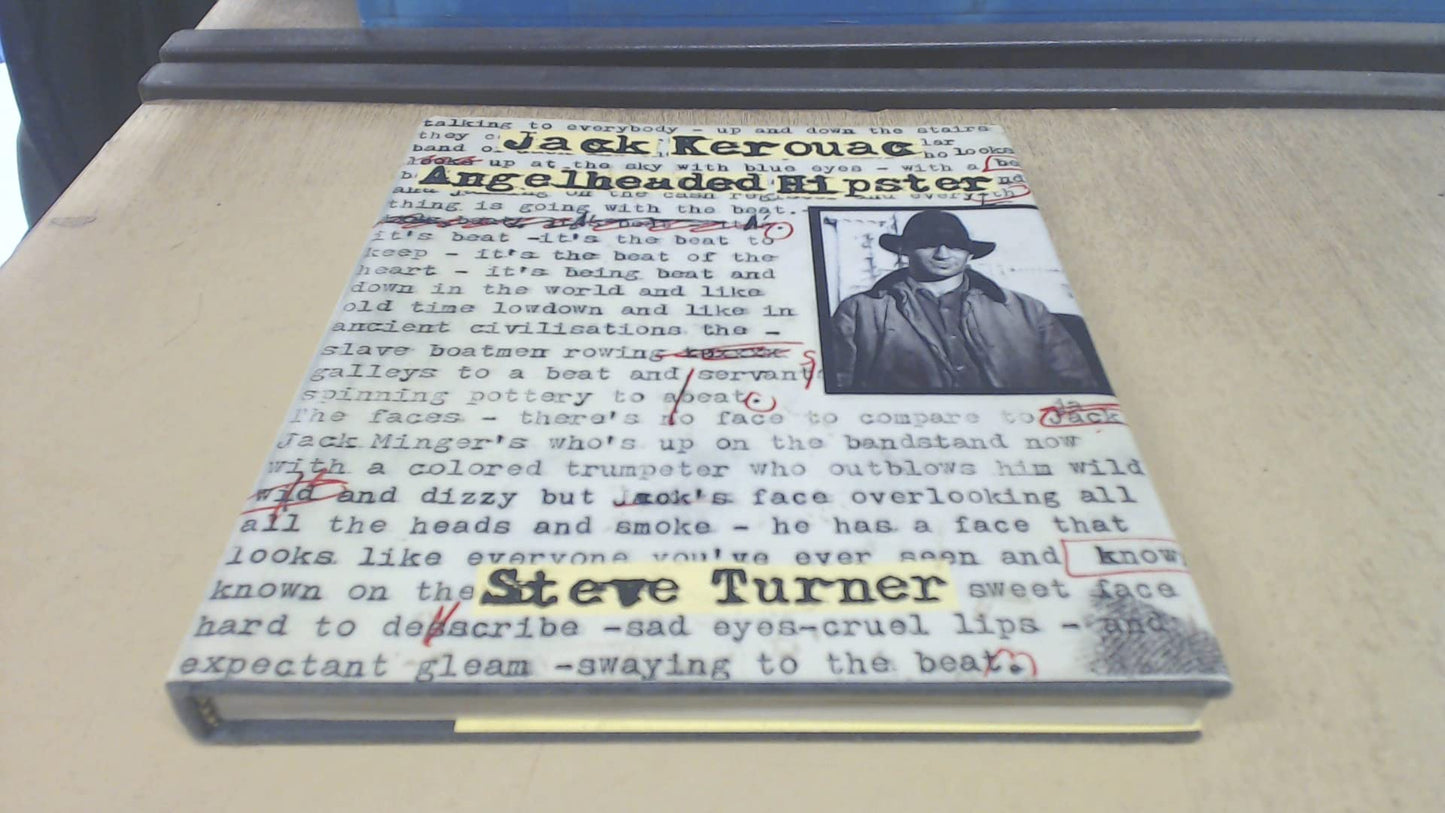 talking to everybody - up and down the stairs
they
Jack Kerouac
lar
band o
he looks
looks up at the sky with blue eyes - with a be
Angelheaded Hipster
nd
on the cash and every th
thing is going with the beat.
it's beat -it's the beat to
keep - it's the beat of the
heart - it's being beat and
down in the world and like
old time lowdown and like in
ancient civilisations the -
slave boatmen rowing
galleys to a beat and servants
spinning pottery to abeat.
The faces - there's no face to compare to Jack
Jack Minger's who's up on the bandstand now
with a colored trumpeter who outblows him wild
wild and dizzy but Jack's face overlooking all
all the heads and smoke - he has a face that
looks like everyone you've ever seen and know
known on the
Steve Turner
sweet face
hard to describe -sad eyes-cruel lips - and
expectant gleam -swaying to the beat.